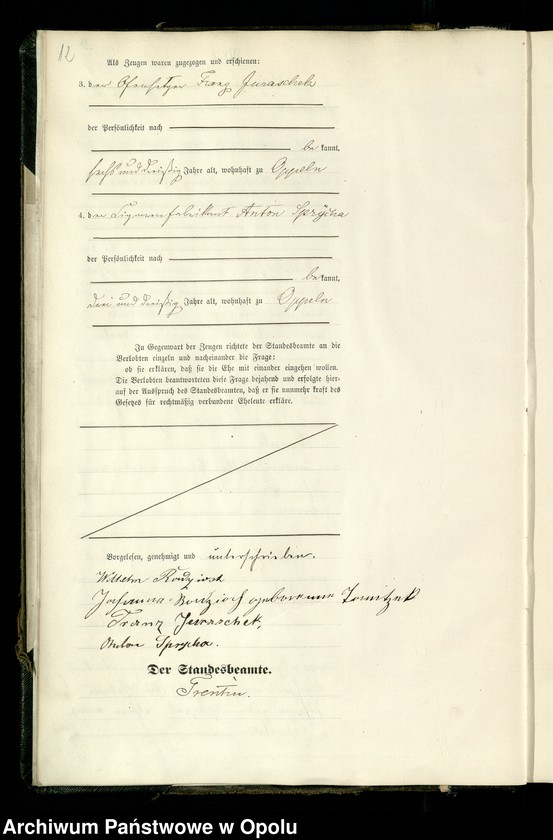 12
Als Zeugen waren zugezogen und erschienen:
3. der Ofensetzer Franz Juraschek
der Persönlichkeit nach
be kannt,
sechs und dreißig Jahre alt, wohnhaft zu Oppeln
4. der Cigarrenfabrikant Anton Sprycha
der Persönlichkeit nach
be kannt,
drei und dreißig Jahre alt, wohnhaft zu Oppeln
In Gegenwart der Zeugen richtete der Standesbeamte an die
Verlobten einzeln und nacheinander die Frage:
ob sie erklären, daß sie die Ehe mit einander eingehen wollen.
Die Verlobten beantworteten diese Frage bejahend und erfolgte hier-
auf der Ausspruch des Standesbeamten, daß er sie nunmehr kraft des
Gesetzes für rechtmäßig verbundene Eheleute erkläre.
Vorgelesen, genehmigt und unterschrieben.
Wilhelm
Johanna geborene Tomitzek
Franz Juraschek,
Anton Sprycha.
Der Standesbeamte.
Trentin.
Archiwum Państwowe w Opolu